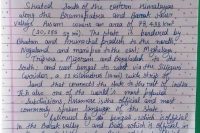 Situated south of the eastern Himalayas
along the Brahmaputra and Barak River
valleys Assam covers an area of 78,438 km²
(30,285 sq mi). The state is bordered by
Bhutan and Arunachal Pradesh to the north;
Nagaland and Manipur to the east; Meghalaya,
Tripura, Mizoram and Bangladesh to the
South and West Bengal to the West via the Siliguri
Corridor, a 22 kilometre (14 mi) wide strip of
land that connects the state to the rest of India
It is also one of the world's most populous
Subdivisions Assamese is the official and most
commonly spoken language of the state
followed by Bengali, which is official
in the Barak valley and Bodo which is official in